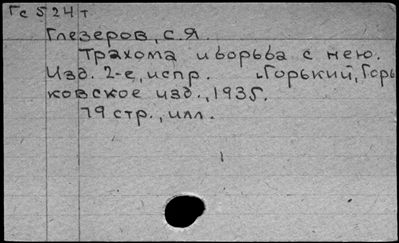 Гс 524 т
Глезеров, С.Я.
Трахома и борьба с нею.
Изд. 2-е, испр. Горький, Горь
ковское изд., 1935.
79 стр., илл.